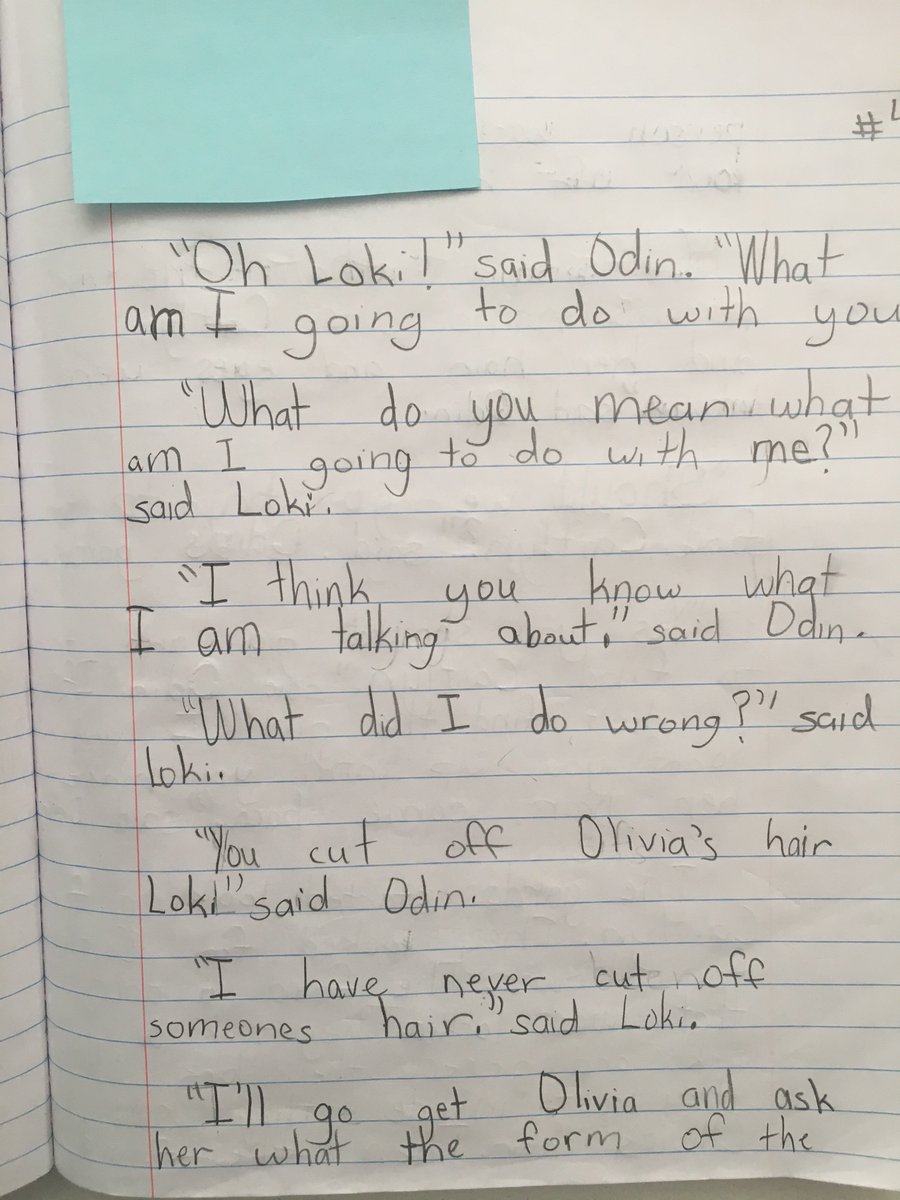 #
"Oh Loki!" said Odin. "What
am I going to do with you
"What do you mean what
am I going to do with me?"
said Loki.
"I think you know what
I am talking about," said Odin.
"What did I do wrong?" said
Loki.
"You cut off Olivia's hair
Loki" said Odin.
"I have never cut off
someones hair." said Loki.
"I'll go get Olivia and ask
her what the form of the